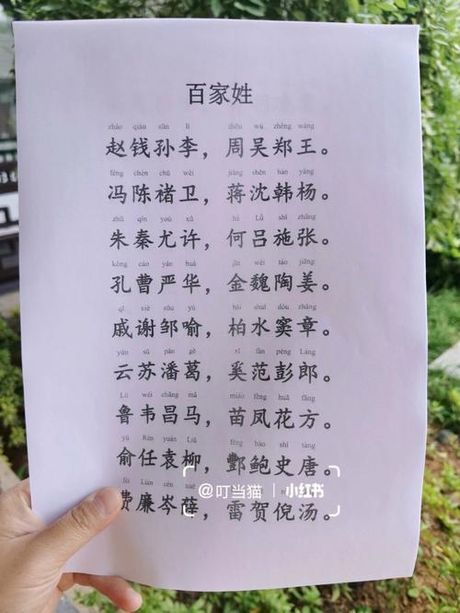 百家姓
zhào qián sūn lǐ zhōu wú zhèng wáng
赵钱孙李，周吴郑王。
féng chén chǔ wèi jiǎng shěn hán yáng
冯陈褚卫，蒋沈韩杨。
zhū qín yóu xǔ hé Lǚ shī zhāng
朱秦尤许，何吕施张。
kǒng cáo yán huà jīn wèi táo jiāng
孔曹严华，金魏陶姜。
qī xiè zōu yù bǎi shuǐ dòu zhāng
戚谢邹喻，柏水窦章。
yún sū pān gě xī fàn péng Láng
云苏潘葛，奚范彭郎。
Lǔ wéi chāng mǎ miáo fèng huā fāng
鲁韦昌马，苗凤花方。
yú Rén yuán Liǔ fēng bào shǐ táng
俞任袁柳，酆鲍史唐。
fèi Lián cén xuē
费廉岑薛，雷贺倪汤。
@叮当猫 小红书